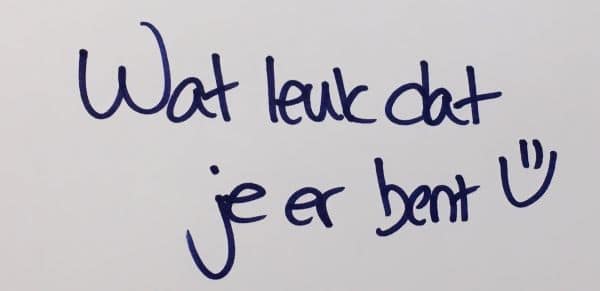 Wat leuk dat
je er bent